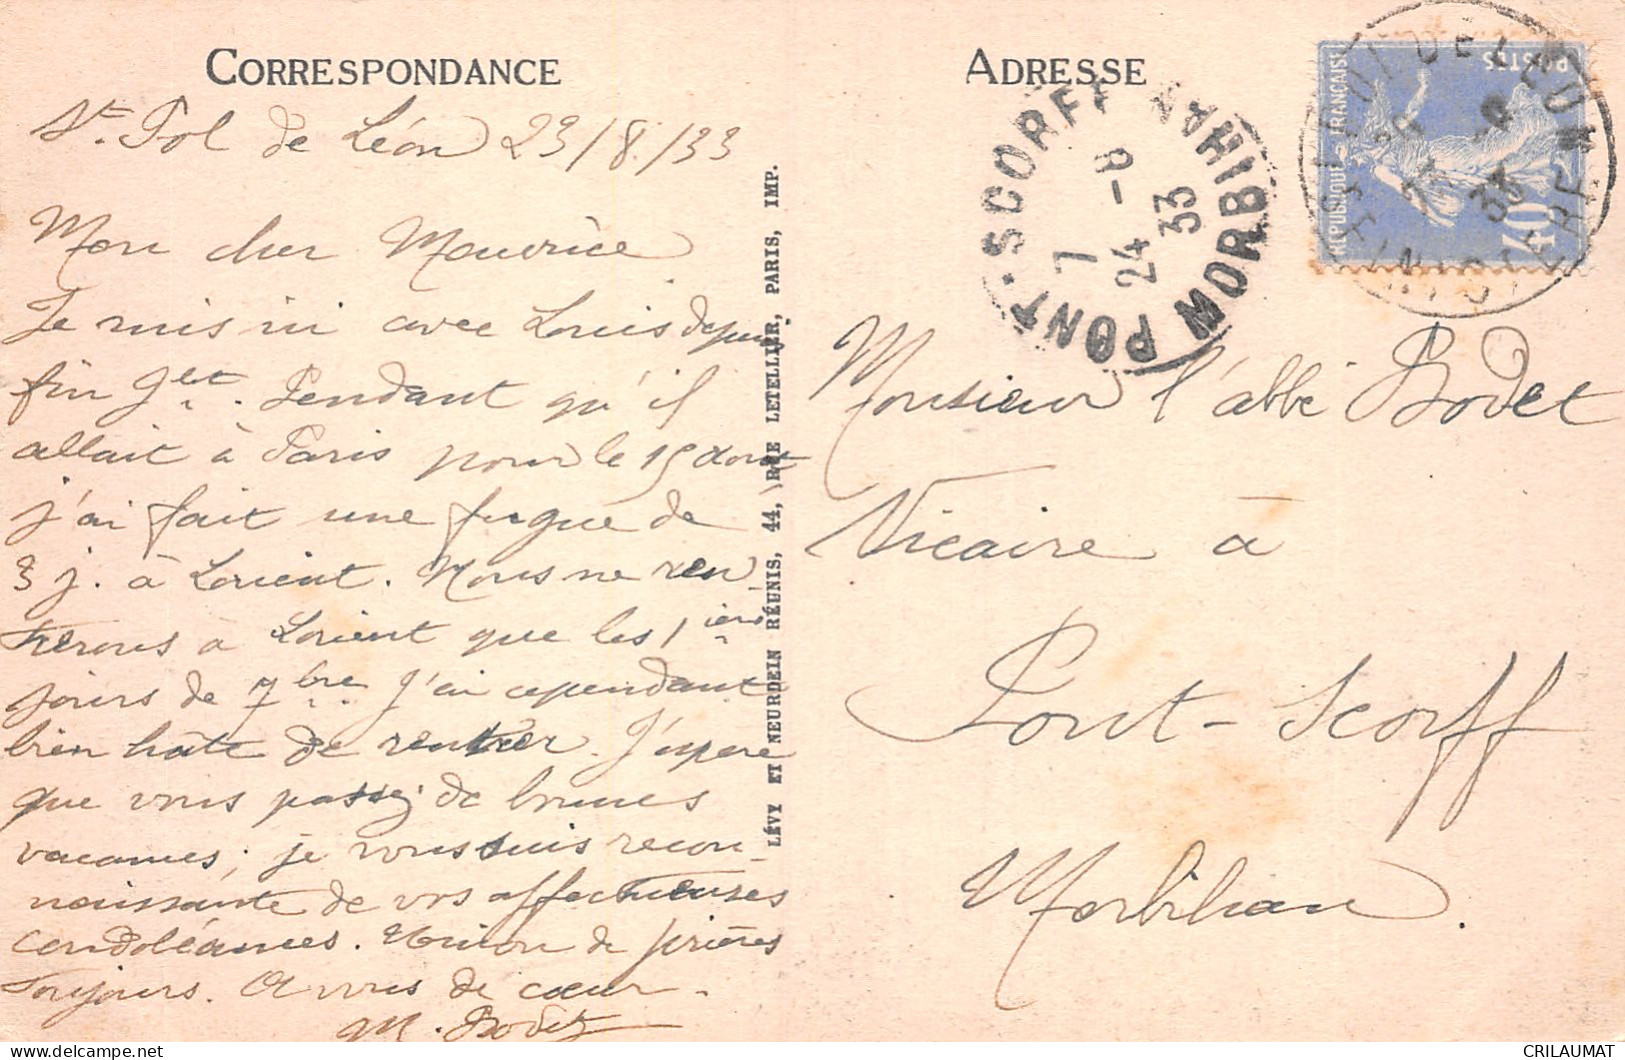 CORRESPONDANCE
St. Pol de Léon 23/8/33
Mon cher Maurice
Je suis ici avec Louis depuis
fin Jlet. Pendant qu'il
allait à Paris pour le 15 Aout
j'ai fait une fugue de
3 j. à Lorient. Nous ne ren
trerons à Lorient que les 1iers
jours de 7bre. J'ai cependant
bien hâte de rentrer. J'espère
que vous passez de bonnes
vacances; je vous suis recon-
naissante de vos affectueuses
condoléances. Union de prières
toujours. A vous de cœur.
M. Bodet
LÉVY ET NEURDEIN RÉUNIS, 44, RUE LETELLIER, PARIS, IMP.
ADRESSE
PONT-SCORFF MORBIHAN
7
24 - 8
33
RÉPUBLIQUE FRANÇAISE
POSTES
40
ST POL DE LEON
FINISTERE
33
Monsieur l'abbé Bodet
Vicaire à
Pont-Scorff
Morbihan.
CRILAUMAT